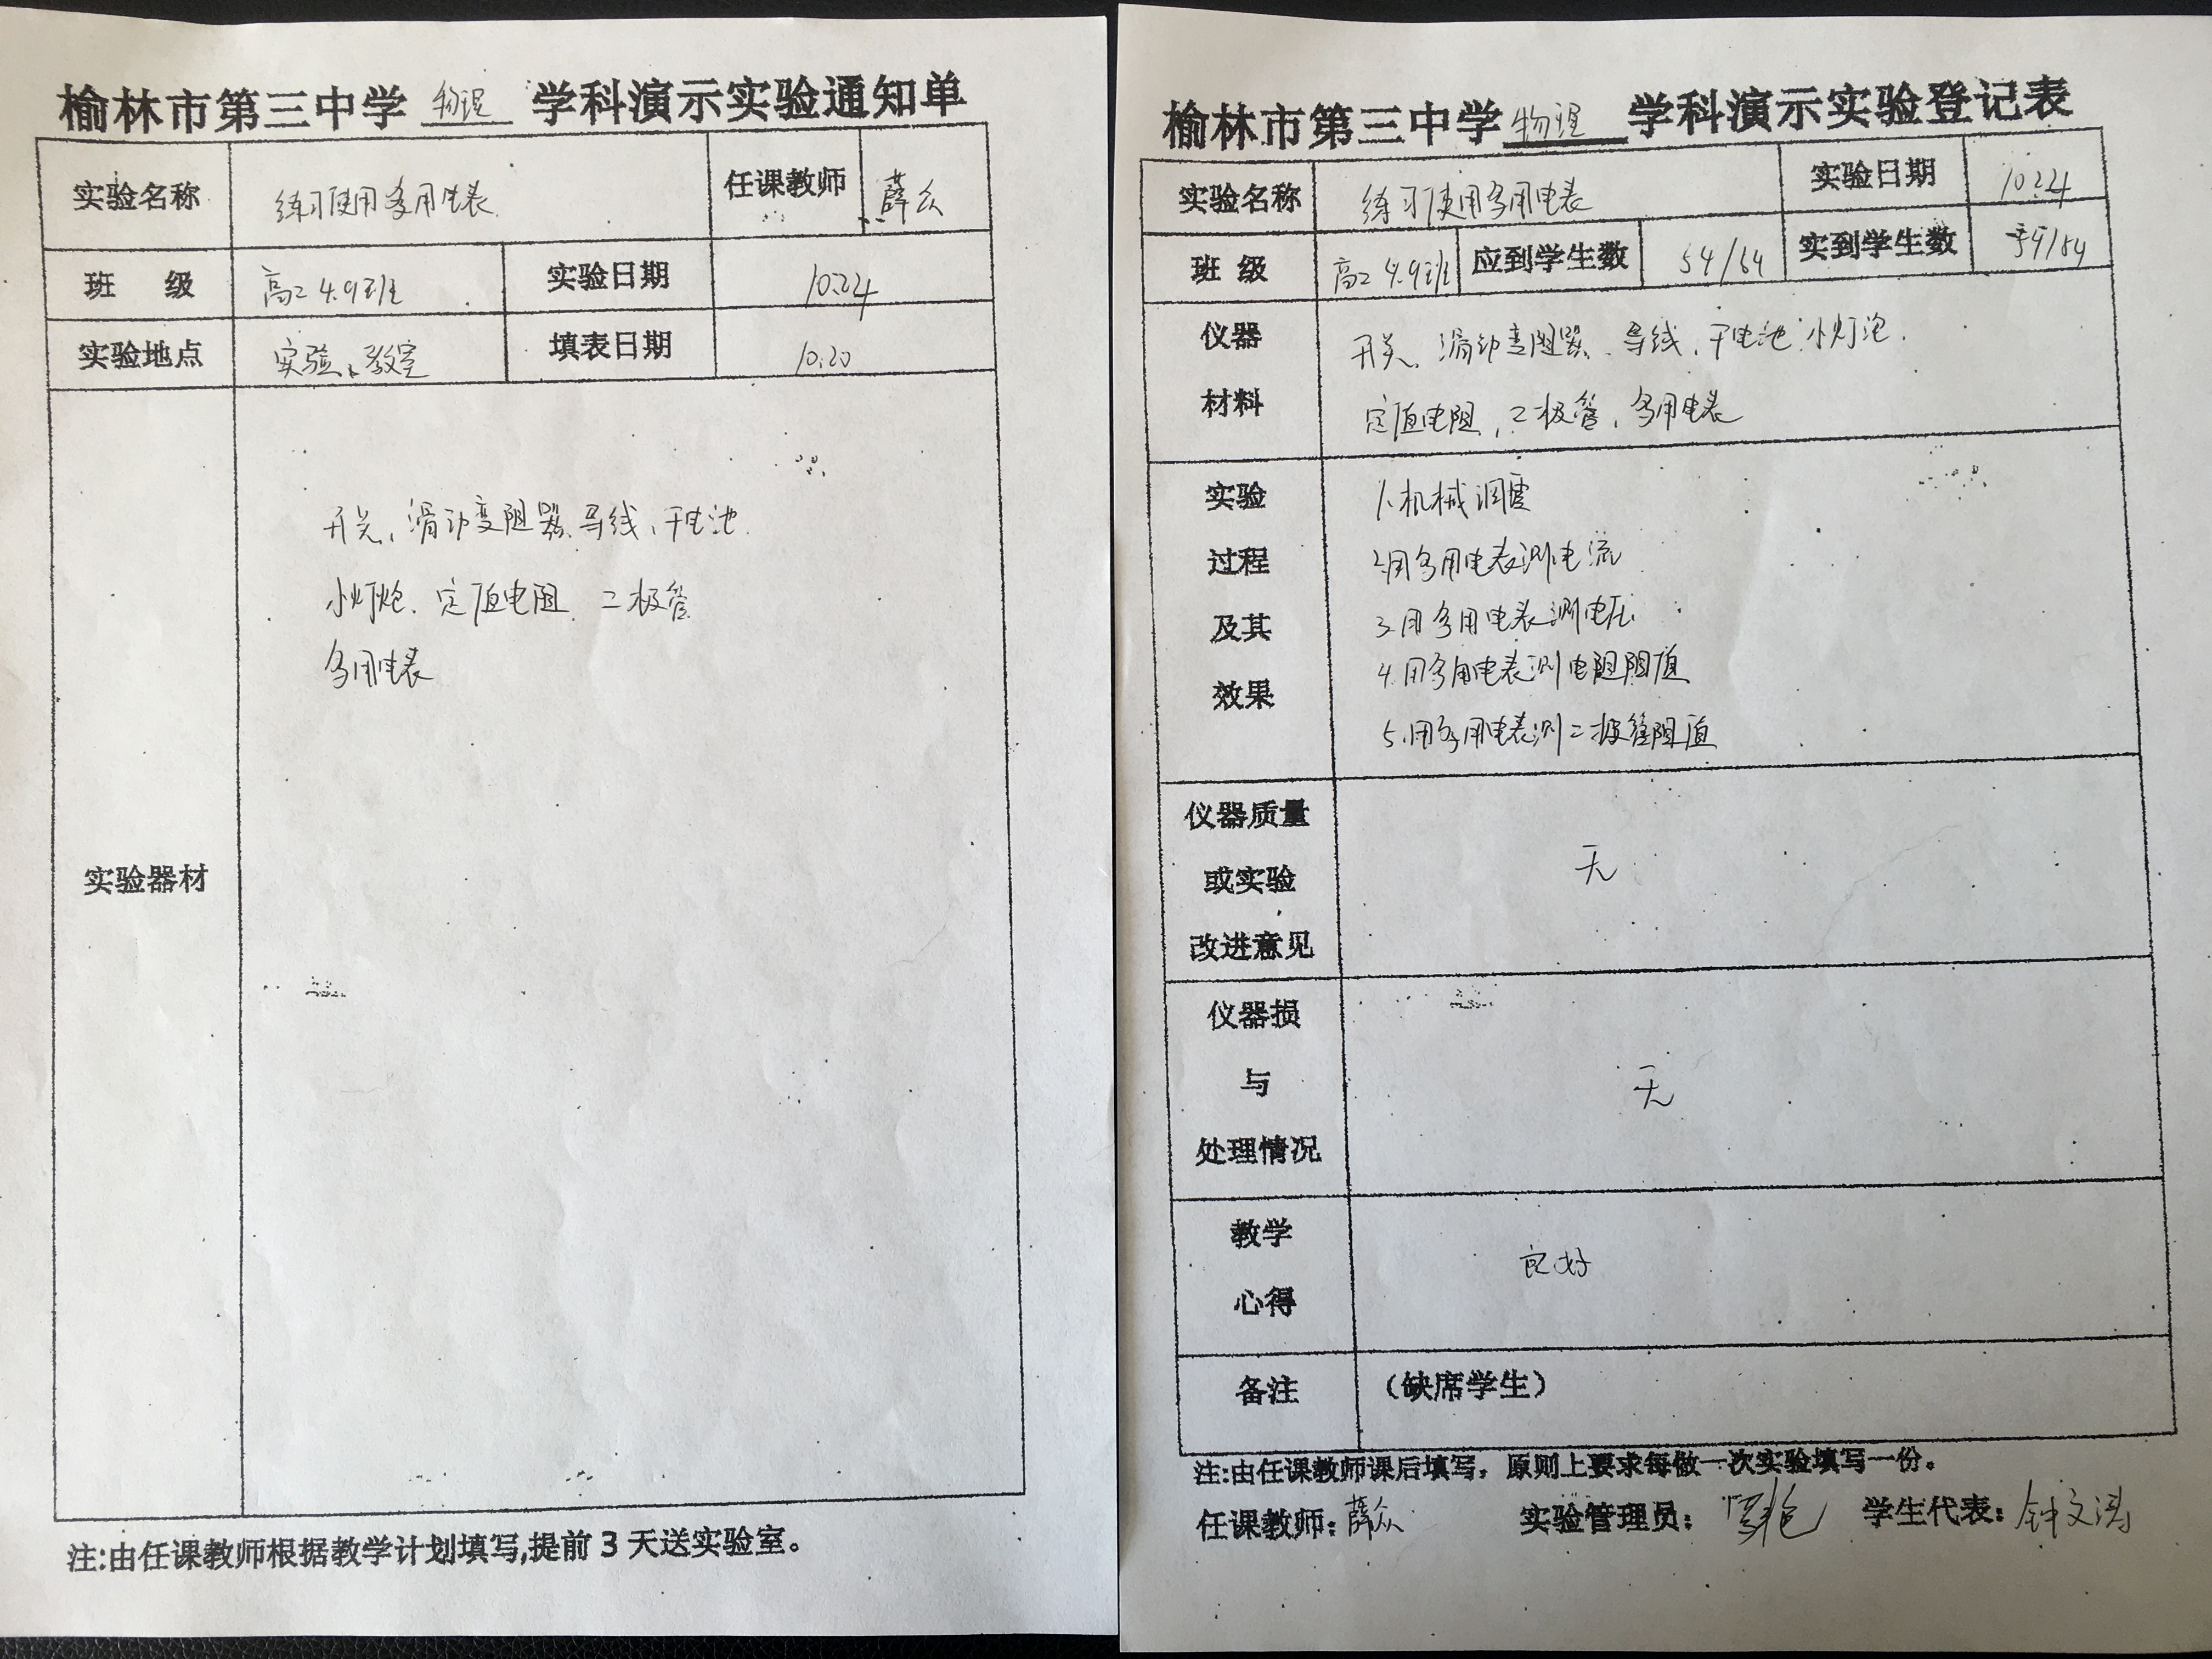 榆林市第三中学 物理 学科演示实验通知单
实验名称 练习使用多用电表 任课教师 薛众
班 级 高二4.9班 实验日期 10.24
实验地点 实验、教室 填表日期 10.20
实验器材
开关、滑动变阻器、导线、干电池.
小灯炮、定值电阻、二极管
多用电表
注:由任课教师根据教学计划填写,提前3天送实验室。
榆林市第三中学 物理 学科演示实验登记表
实验名称 练习使用多用电表 实验日期 10.24
班 级 高二4.9班 应到学生数 54/54 实到学生数 54/54
仪器 开关、滑动变阻器、导线、干电池、小灯泡.
材料 定值电阻、二极管、多用电表
实验 1.机械调零
过程 2.用多用电表测电流
及其 3.用多用电表测电压
4.用多用电表测电阻阻值
效果
5.用多用电表测二极管阻值
仪器质量
或实验 无
改进意见
仪器损
与 无
处理情况
教学
良好
心得
备注 （缺席学生）
注:由任课教师课后填写，原则上要求每做一次实验填写一份。
任课教师:薛众 实验管理员: 学生代表:钟文涛